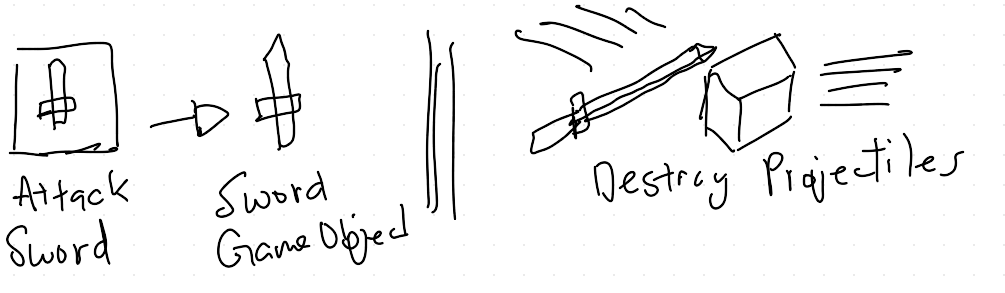 Attack
Sword
Sword
GameObject
Destroy Projectiles